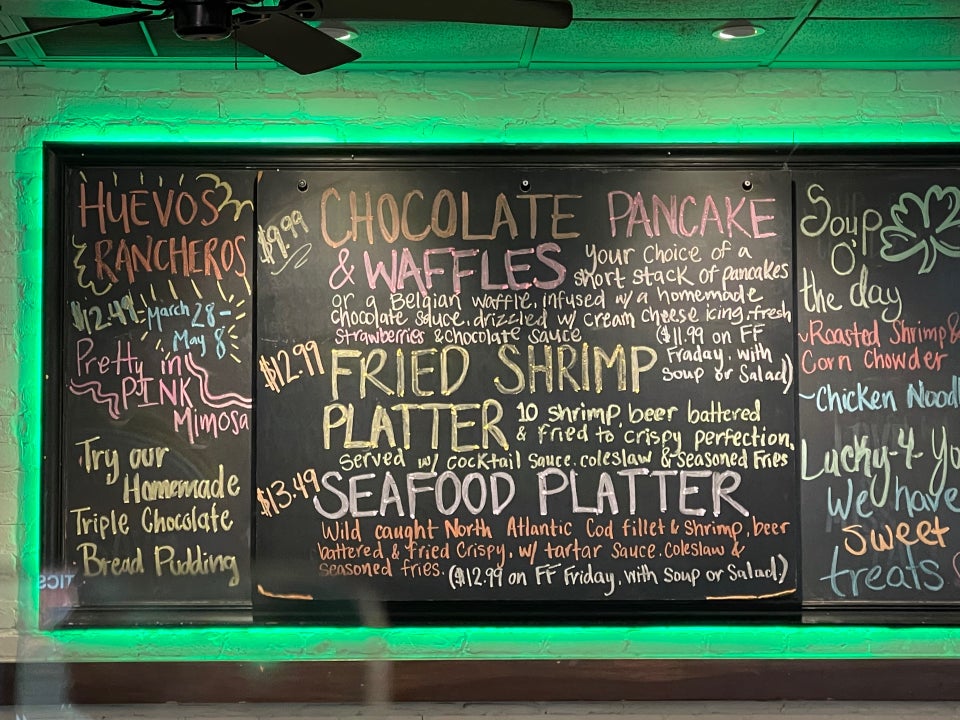 HUEVOS
RANCHEROS
$12.49! March 28 -
May 8
Pretty in
PINK
Mimosa
Try our
Homemade
Triple Chocolate
Bread Pudding
$9.99
CHOCOLATE PANCAKE
& WAFFLES
Your choice of a
short stack of pancakes
or a Belgian waffle, infused w/ a homemade
chocolate sauce, drizzled w/ cream cheese icing, fresh
strawberries & chocolate sauce
($11.99 on FF
Fraday, with
soup or Salad)
$12.99
FRIED SHRIMP
PLATTER
10 shrimp, beer battered
& fried to crispy perfection,
served w/ cocktail sauce, coleslaw & seasoned fries
$13.49
SEAFOOD PLATTER
Wild caught North Atlantic Cod fillet & shrimp, beer
battered & fried crispy, w/ tartar sauce, coleslaw &
seasoned fries. ($12.99 on FF Friday, with soup or Salad)
Soup
O'
the day
~Roasted Shrimp &
Corn Chowder
~Chicken Noodl
Lucky-4-Yo
We have
sweet
treats